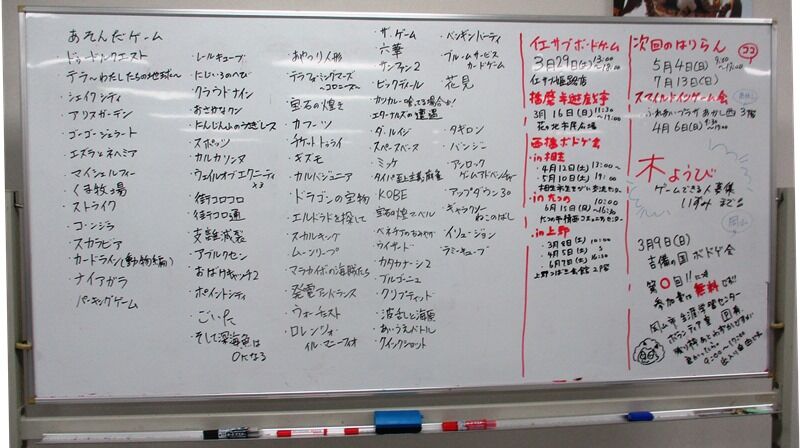 あそんだゲーム
・ドゥードルクエスト
・テラ〜わたしたちの地球〜
・シェイクシティ
・アリスガーデン
・ゴーゴージェラート
・エズラとネヘミア
・マイシェルフィー
・くま牧場
・ストライク
・コンジラ
・スカラビア
・カードライン(動物編)
・ナイアガラ
パーキングゲーム
・レールキューブ
・にじいろのへび
・クラウドナイン
・おさかなクン
・にんじんふのうさぎレース
・スポッツ
・カルカソンヌ
・ウェイルオブエクニティ
×3
・街コロコロ
・街コロ通
・支離滅裂
・アブルクセン
・おばけキャッチ2
・ポイントシティ
・ごいた
・そして深海魚は
0になる
・あやつり人形
・テラフォーミングマーズ
〜コロニーズ〜
・宝石の煌き
・カフーツ
・チケットトゥライド
・ギズモ
・カルバジェニア
・ドラゴンの宝物
・エルドラドを探して
・スカルキング
・ムーンリープ
・マラカイボの海賊たち
・発電アンドランス
・ウォーチェスト
・ロレンツォ
イル・マニーフィオ
・ザ・ゲーム
・六華
・サンファン2
・ビッグディール
・カンカン・唸ってる場合か!
エターナルズの遭遇
・ダ・ルイジ
・スペースベース
・ミッケ
・タイパ至上主義麻雀
・KOBE
・宝石の煌マベル
・ベネチアのおみやげ
・ウィザード
・カタカナーシ2
・ブルゴーニュ
・クリプティッド
・波乱と海魚
・あいうえバトル
・クインクショット
・ペンギンパーティ
・ブルームサービス
カードゲーム
・花見
・タギロン
・バンジー
・アンロック
ゲームアドベンチャー
・アップダウン30
・ギャラクシー
ねこのはし
・イリュージョン
・ラミーキューブ
イエサブボードゲーム
3月29日(土)13:00
イエサブ姫路店
播磨卓遊戯亭
3月16日(日)11:30
〜17:00
花の北市民広場
西播ボドゲ会
・in 相生
・4月12日(土)13:00〜
・5月10日(土)19:00
・in たつの
・6月15日(日)10:00
〜16:30
たつの市揖西コミュニティセンター
・in 上野
・3月8日(土)10:00
・4月5日(土)
・6月7日(土)16:30
上野つばさ会館 2階
次回のはりらん
ココ
5月4日(日)9:30
〜17:00
7月13日(日)
スマイルドインゲーム会
ふれあいプラザあかし西 3階
4月6日(日)9:30
〜17:00
木ようび
ゲームできる人募集
いずみまで
岡山
3月9日(日)
吉備の国ボドゲ会
第0回!!にて
参加費は無料じゃ!!
岡山市生涯学習センター
9:00〜17:00
出入り自由です